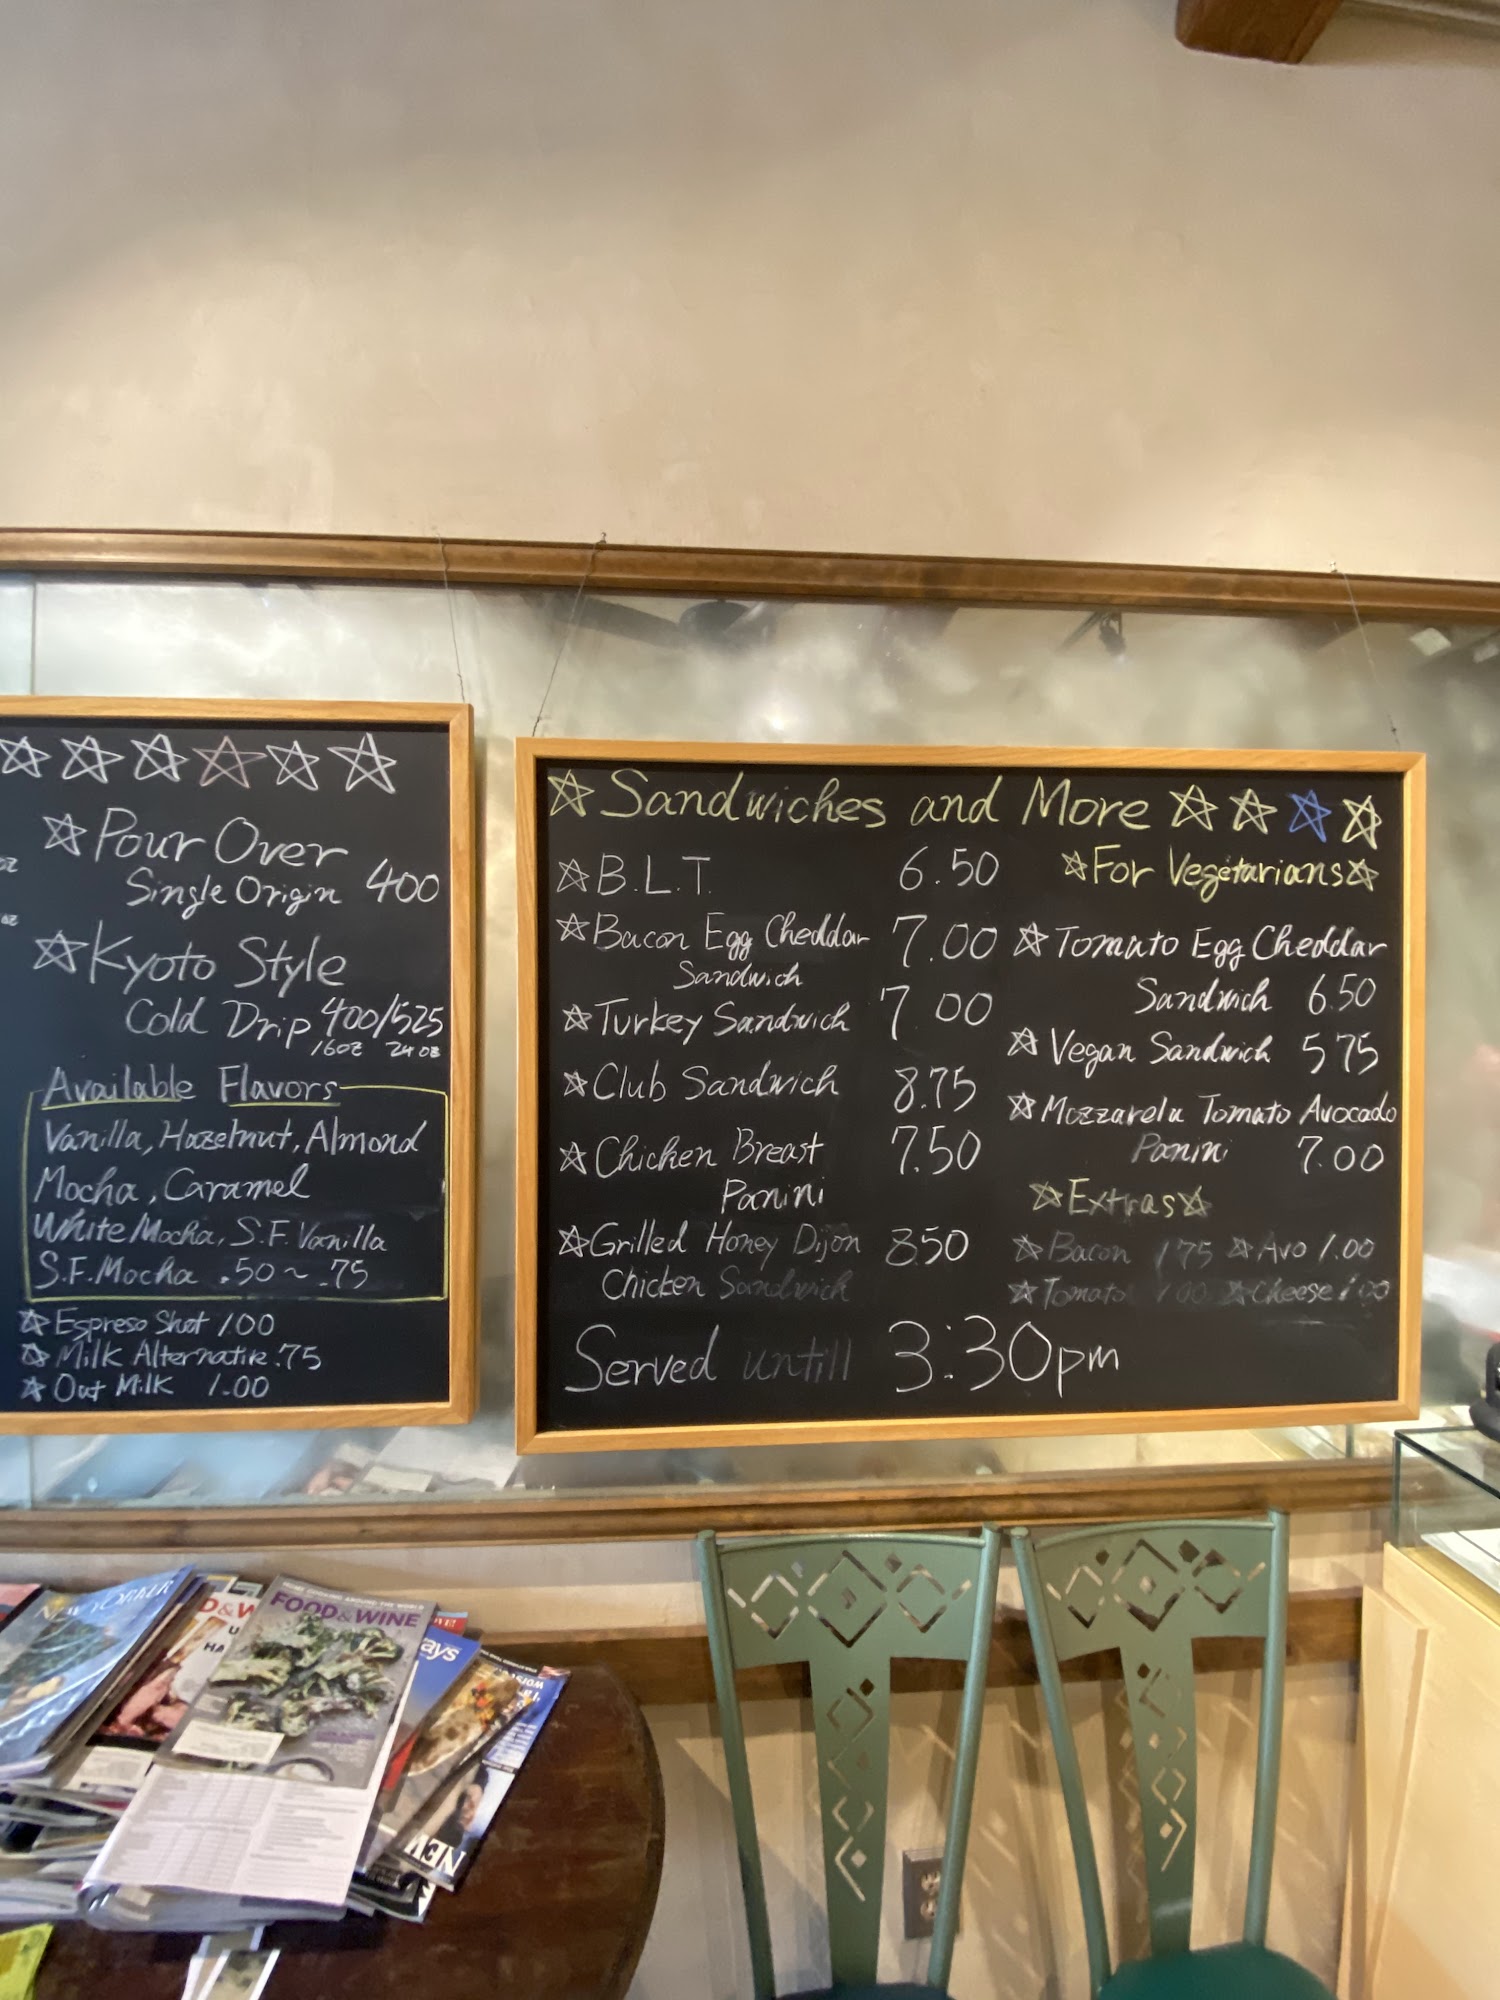 Pour Over
Single Origin 400
Kyoto Style
Cold Drip 400/525
16oz 24oz
Available Flavors
Vanilla, Hazelnut, Almond
Mocha, Caramel
White Mocha, S.F. Vanilla
S.F. Mocha .50~.75
Espreso Shot 1.00
Milk Alternative .75
Oat Milk 1.00
Sandwiches and More
B.L.T. 6.50
Bacon Egg Cheddar 7.00
Sandwich
Turkey Sandwich 7.00
Club Sandwich 8.75
Chicken Breast 7.50
Panini
Grilled Honey Dijon 850
Chicken Sandwich
For Vegetarians
Tomato Egg Cheddar
Sandwich 6.50
Vegan Sandwich 575
Mozzarela Tomato Avocado
Panini 7.00
Extras
Bacon 1.75 Avo 1.00
Tomato 1.00 Cheese 1.00
Served untill 3:30pm
NEW YORKER
FOOD & WINE
NEW